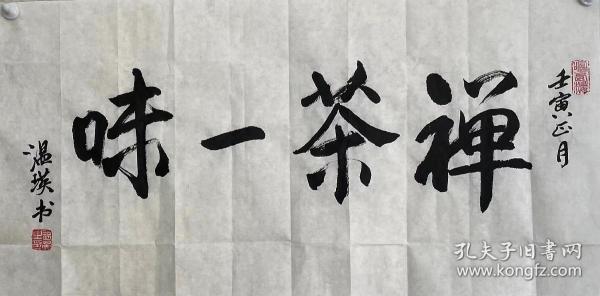 壬寅正月
禅茶一味
温瑛书
孔夫子旧书网
www.kongfz.com